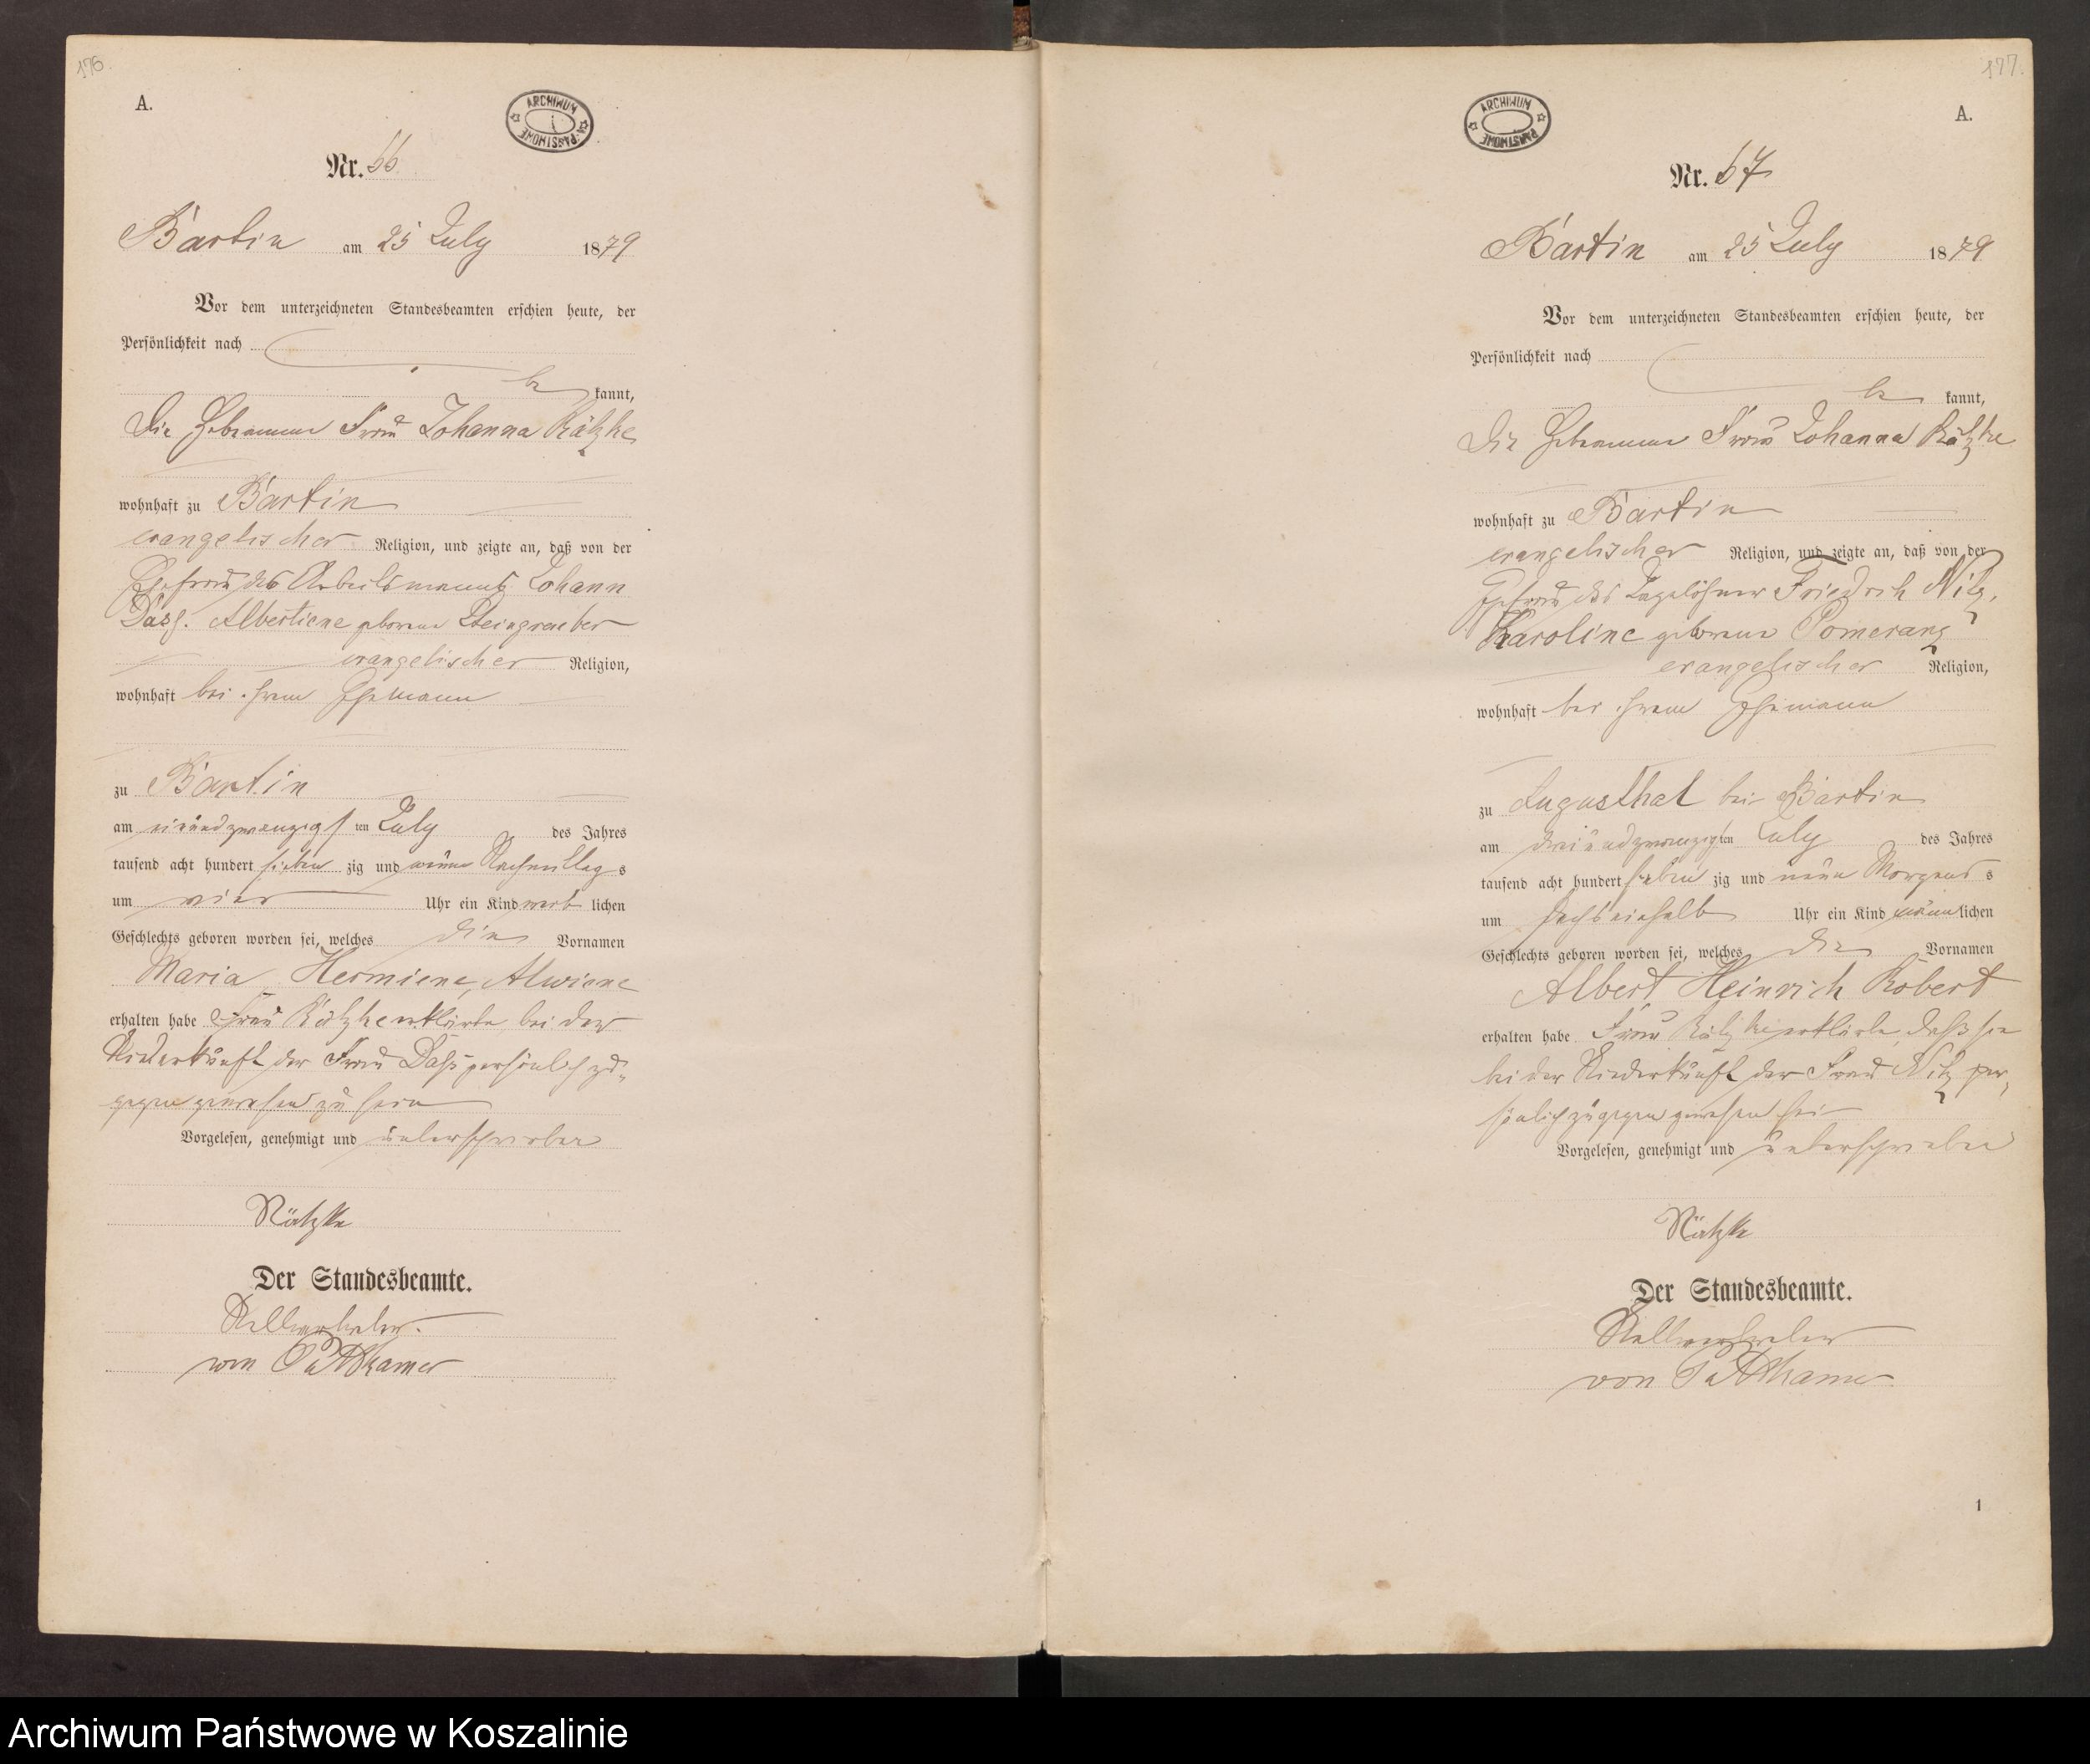 176.
A.
ARCHIWUM PAŃSTWOWE
Nr. 66.
Bartin am 25 July 1879
Vor dem unterzeichneten Standesbeamten erschien heute, der
Persönlichkeit nach
be kannt,
die Hebamme Frau Johanna Rätzke
wohnhaft zu Bartin
evangelischer Religion, und zeigte an, daß von der
Ehefrau des Arbeitsmanns Johann
Dass. Albertiene geborene Steingraeber
evangelischer Religion,
wohnhaft bei ihrem Ehemann
zu Bartin
am einundzwanzigsten July des Jahres
tausend acht hundert sieben zig und neun Nachmittag s
um vier Uhr ein Kind weib lichen
Geschlechts geboren worden sei, welches die Vornamen
Maria, Hermiene, Alwiene
erhalten habe Frau Rätzke erklärte, bei der
Niederkunft der Frau Dass persönlich zu-
gegen gewesen zu sein
Vorgelesen, genehmigt und unterschrieben
Rätzke
Der Standesbeamte.
Stellvertreter.
von Puttkamer
177.
A.
ARCHIWUM PAŃSTWOWE
Nr. 67
Bartin am 25 July 1879
Vor dem unterzeichneten Standesbeamten erschien heute, der
Persönlichkeit nach
be kannt,
die Hebamme Frau Johanna Rätzke
wohnhaft zu Bartin
evangelischer Religion, und zeigte an, daß von der
Ehefrau des Tagelöhner Friedrich Nitz,
Karoline geborene Pomeranz
evangelischer Religion,
wohnhaft bei ihrem Ehemann
zu Augusthal bei Bartin
am dreiundzwanzigsten July des Jahres
tausend acht hundert sieben zig und neun Morgens s
um sechseinhalb Uhr ein Kind männlichen
Geschlechts geboren worden sei, welches die Vornamen
Albert Heinrich Robert
erhalten habe Frau Rätzke erklärte, daß sie
bei der Niederkunft der Frau Nitz per-
sönlich zugegen gewesen sei
Vorgelesen, genehmigt und unterschrieben
Rätzke
Der Standesbeamte.
Stellvertreter
von Puttkamer
1
Archiwum Państwowe w Koszalinie